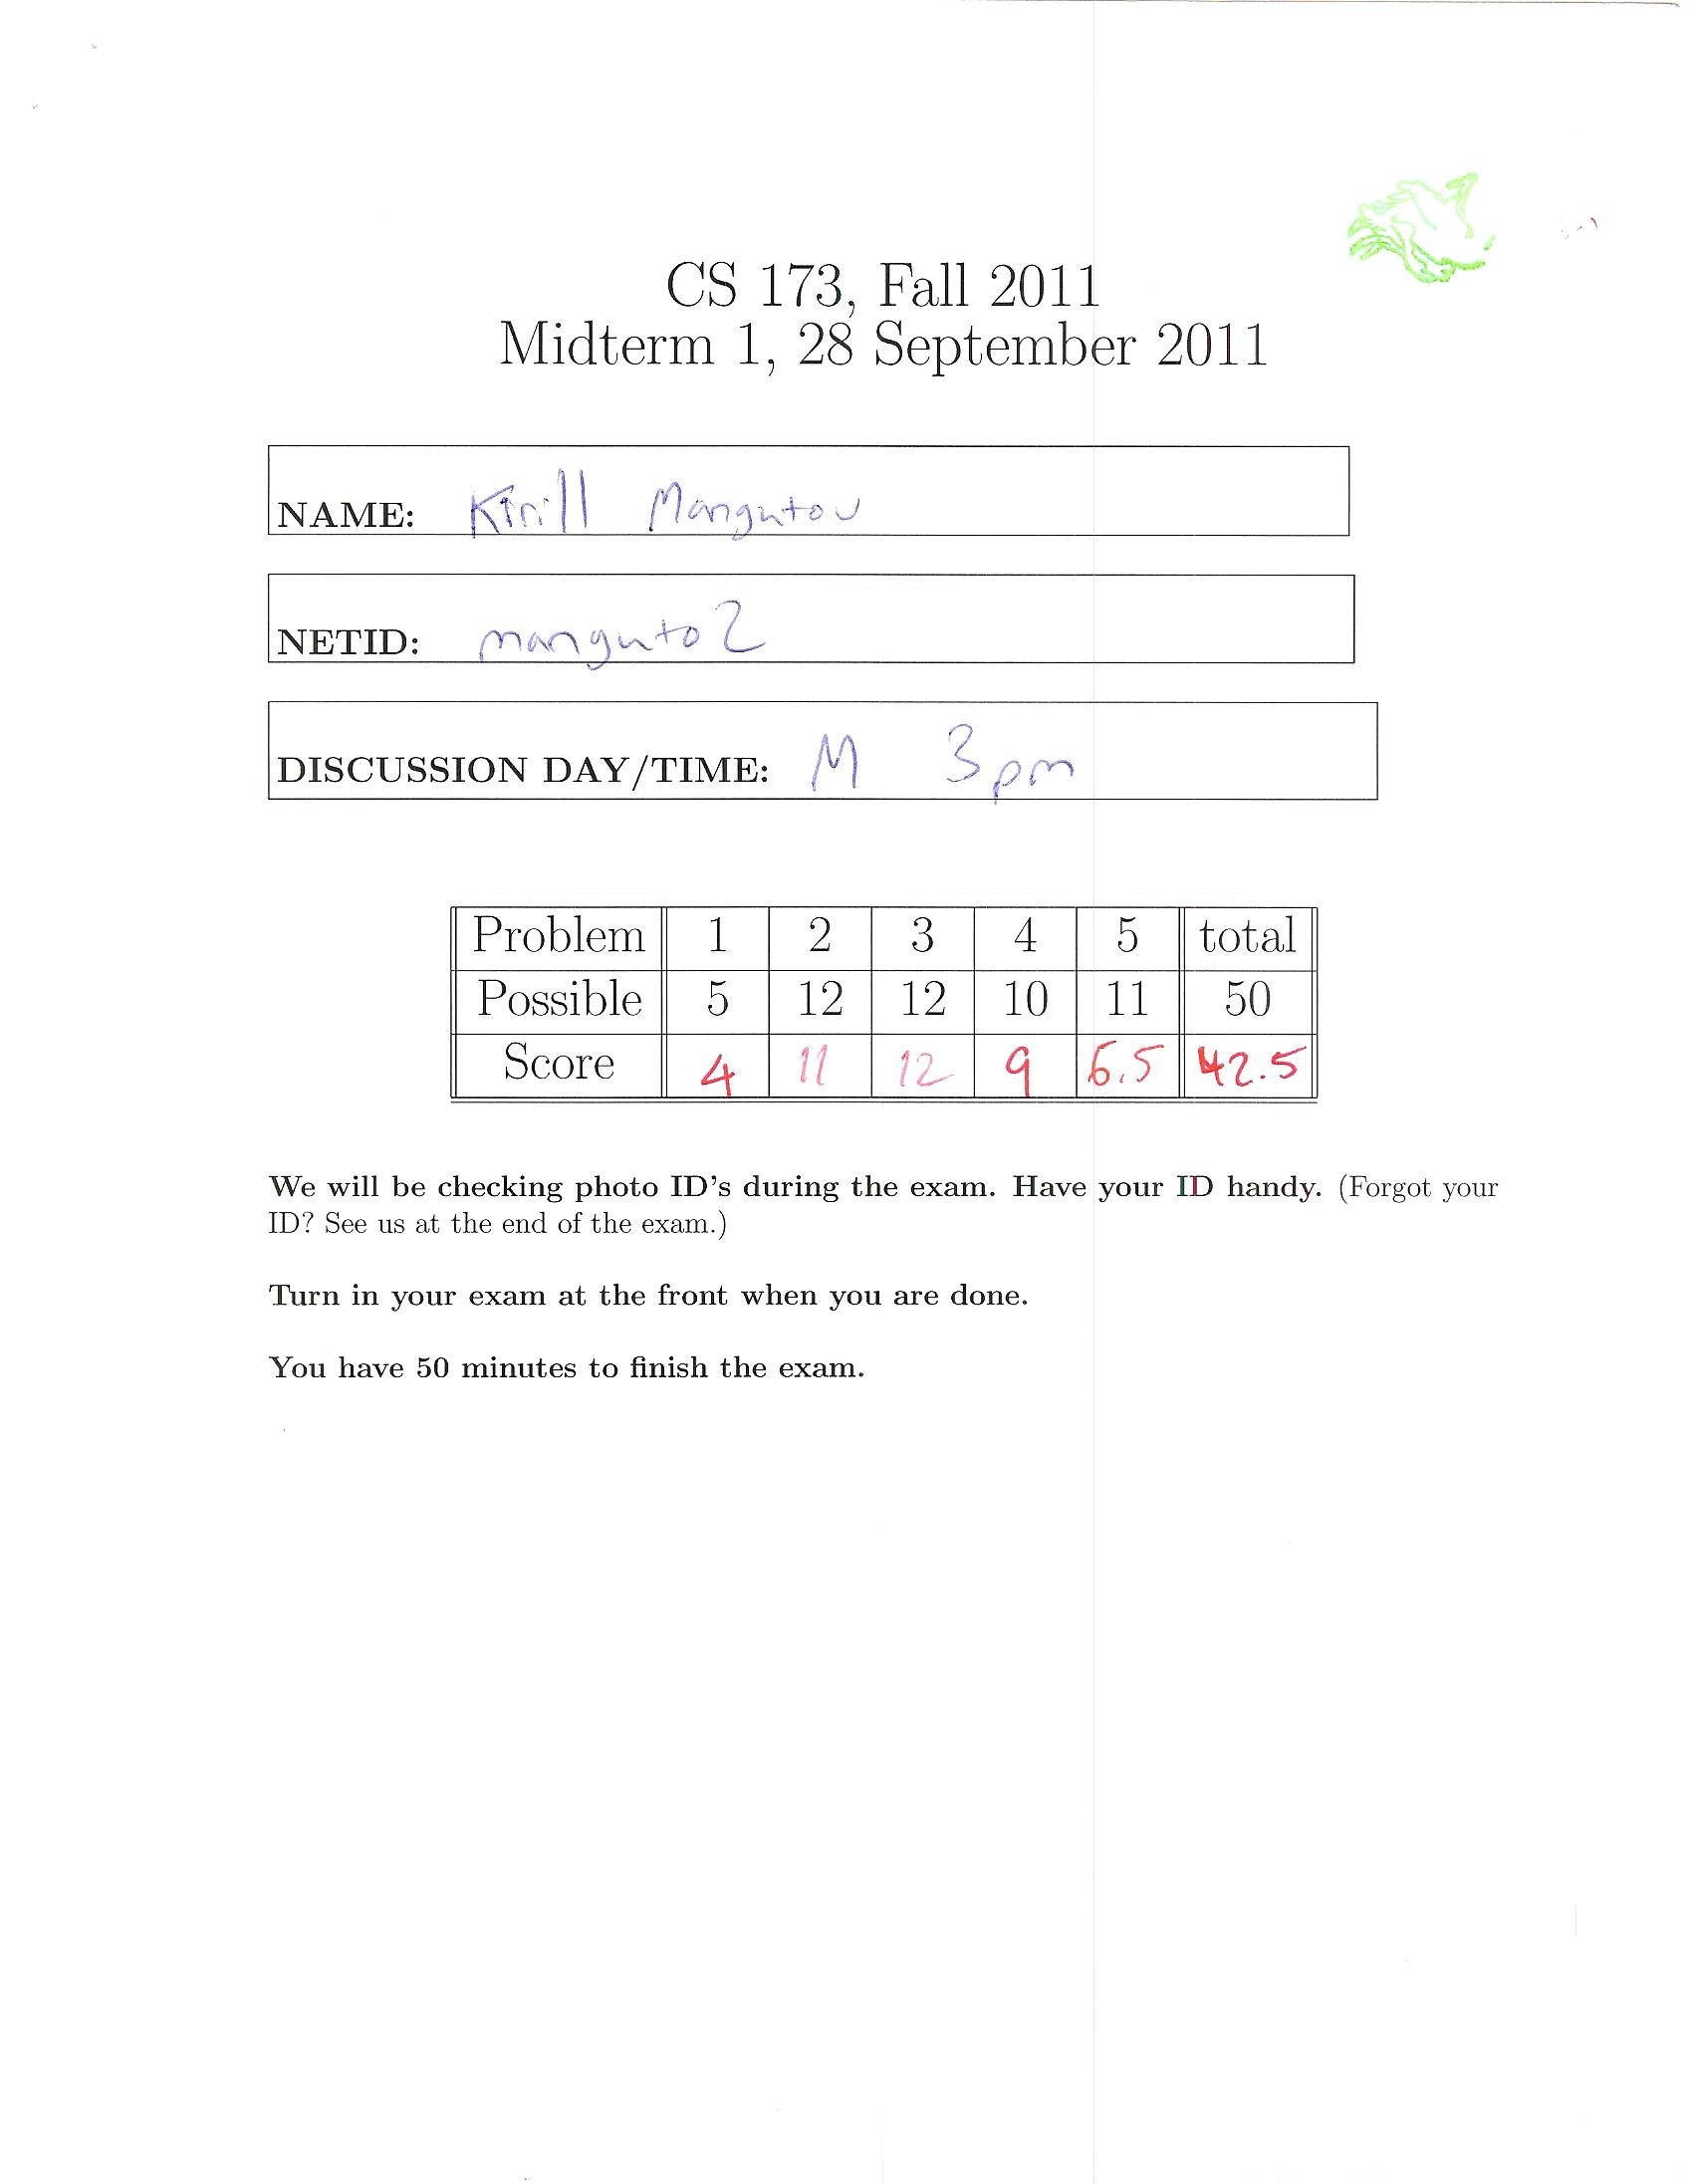 CS 173, Fall 2011
Midterm 1, 28 September 2011
NAME: Kirill Mangutov
NETID: manguto2
DISCUSSION DAY/TIME: M 3pm
Problem 1 2 3 4 5 total
Possible 5 12 12 10 11 50
Score 4 11 12 9 6.5 42.5
We will be checking photo ID's during the exam. Have your ID handy. (Forgot your
ID? See us at the end of the exam.)
Turn in your exam at the front when you are done.
You have 50 minutes to finish the exam.